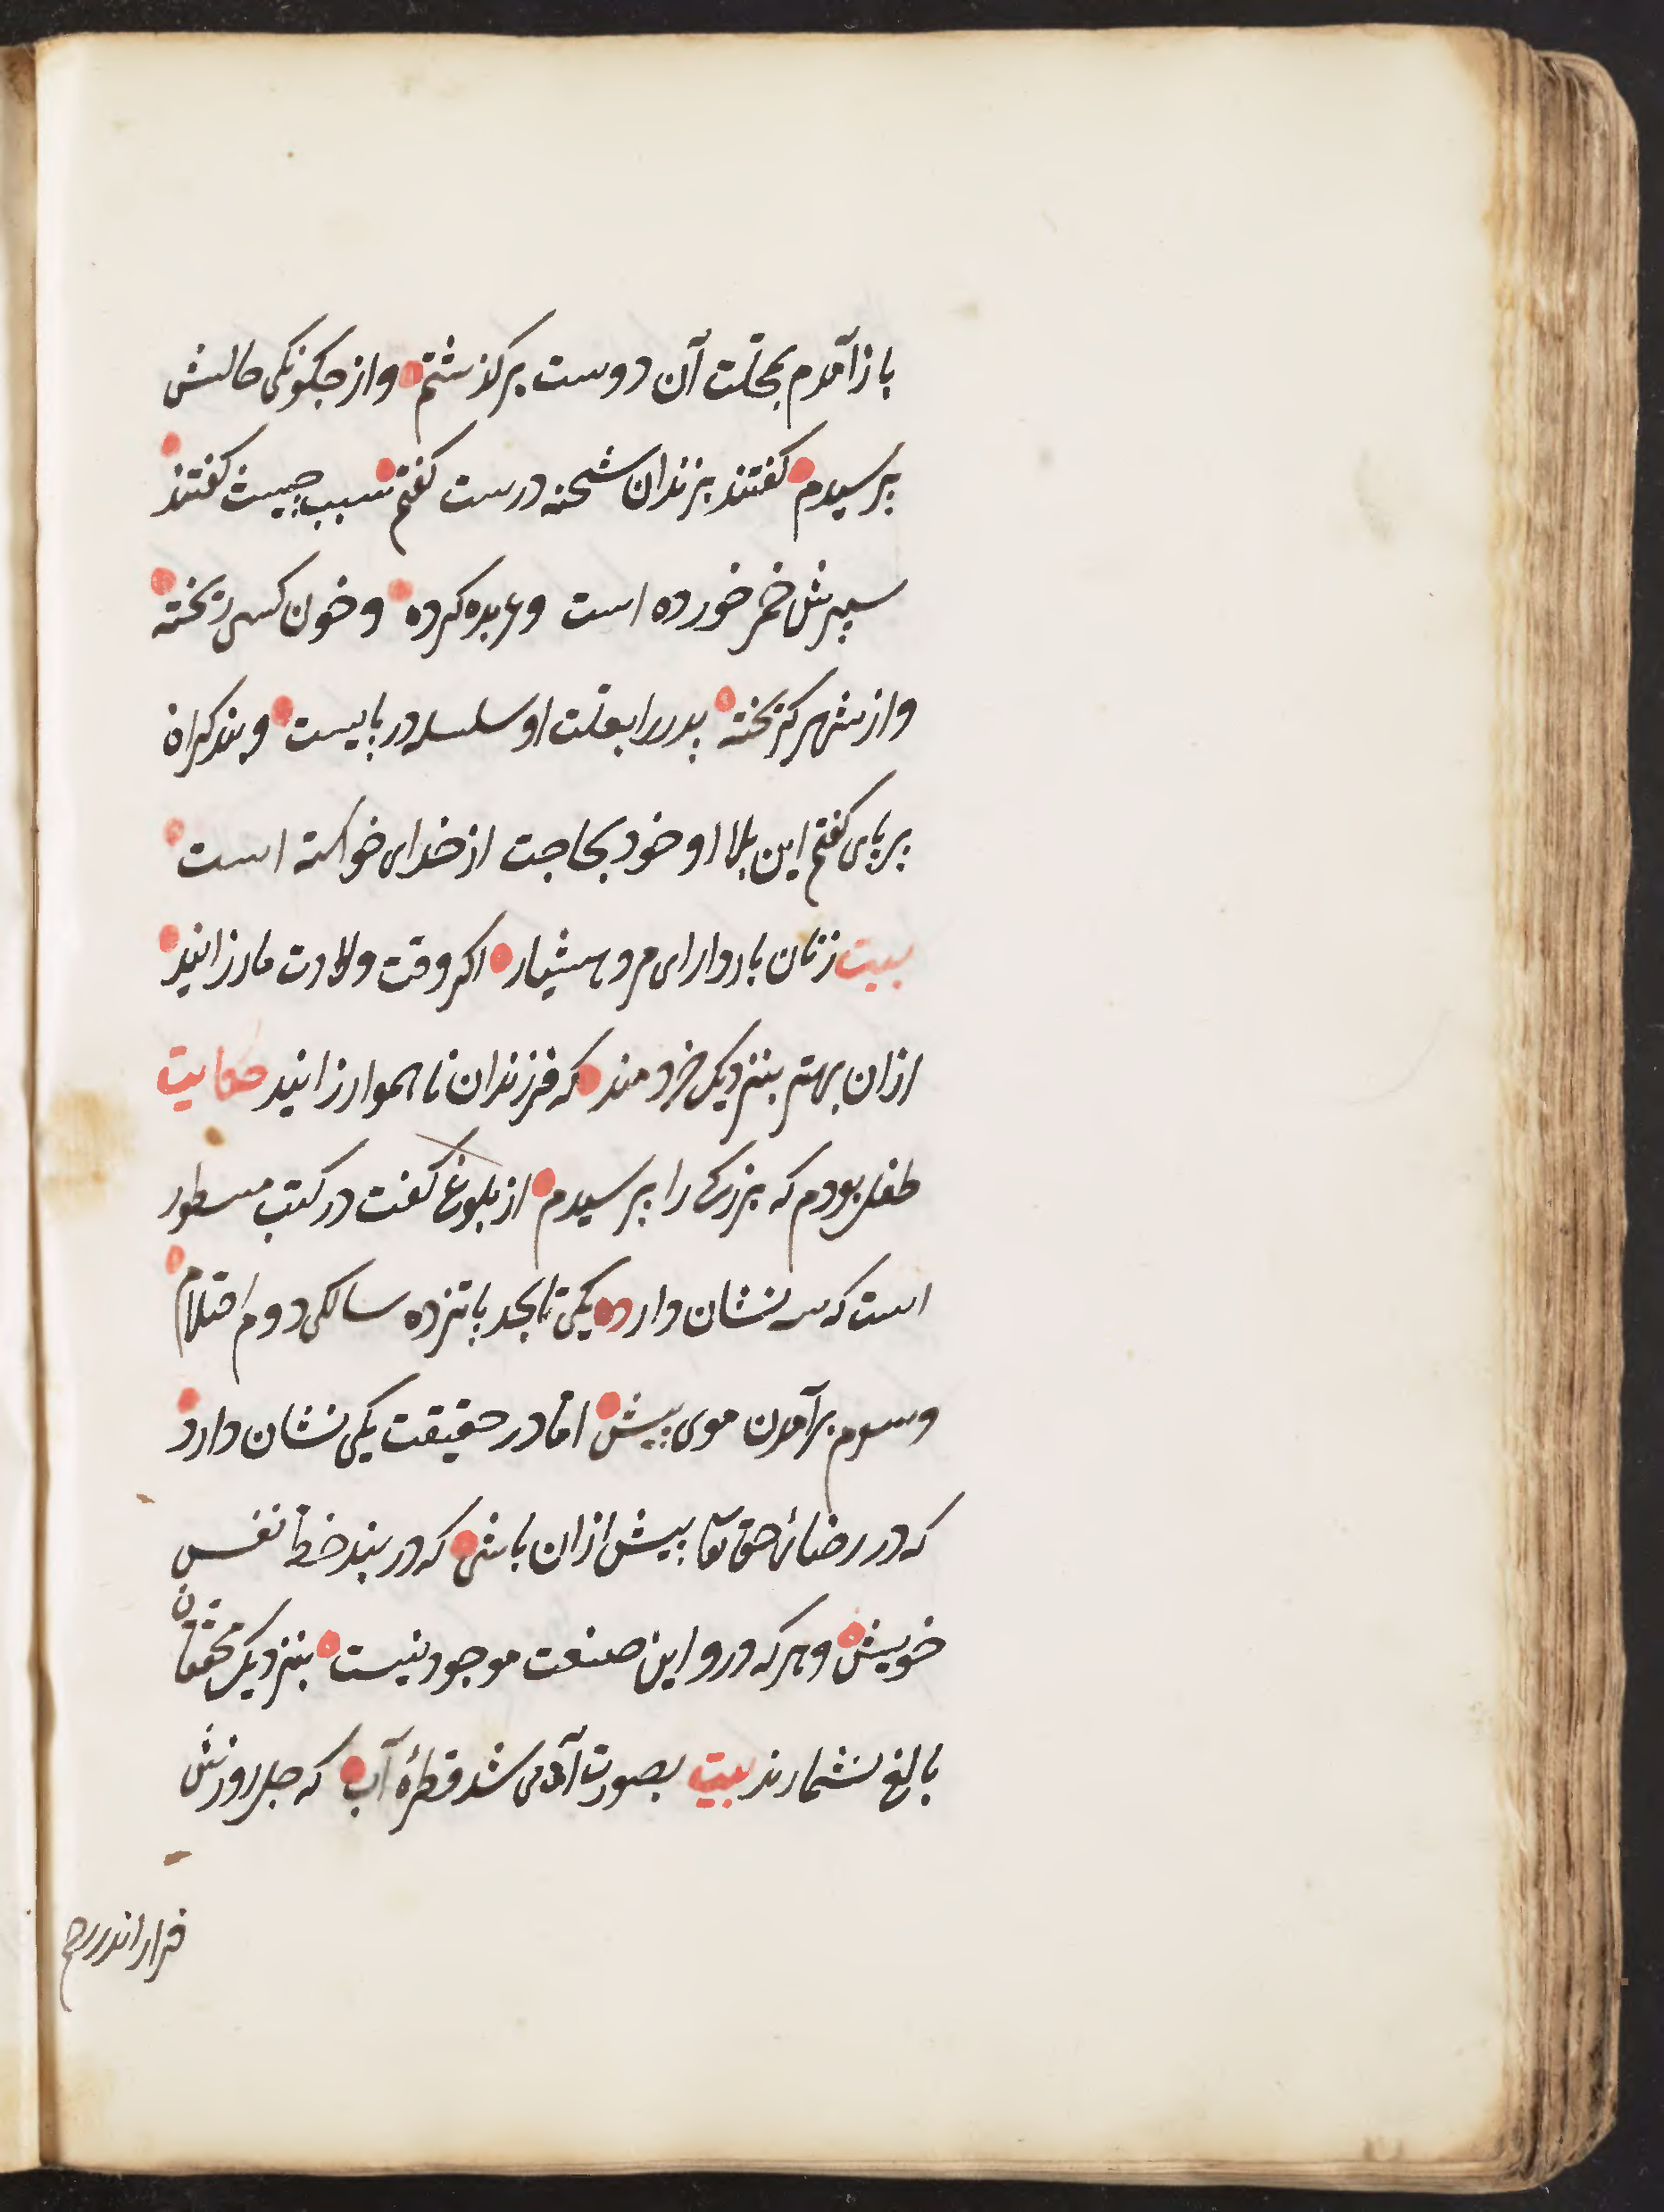 باز آمدم بمحلّت آن دوست برکذشتم واز جکونکی حالش
پرسیدم کفتند بزندان شحنه درست کفتم سبب چیست کفتند
پسرش خمر خورده است وعربده کرده وخون کسی ریخته
واز شهر کریخته پدر را بعلّت او سلسله در پایست وبند کران
بر پای کفتم این بلا او خود بحاجت از خدای خواسته است
بیت زنان باردار ای مرد هشیار اکر وقت ولادت مار زایند
ازان بهتر بنزدیک خردمند که فرزندان ناهموار زایند حکایت
طفل بودم که بزرکی را پرسیدم از بلوغ کفت در کتب مسطور
است که سه نشان دارد یکی تا بحد پانزده سالکی دوم احتلام
وسوم برآمدن موی پیش امّا در حقیقت یکی نشان دارد
که در رضائ حق تعا پیش ازان باشی که در بند حظ نفس
خویش وهرکه درو این صنعت موجود نیست بنزدیک محققان
بالغ نشمارند بیت بصورت آدمی شد قطرۀ آب که چل روزش
قرار اندر رحم